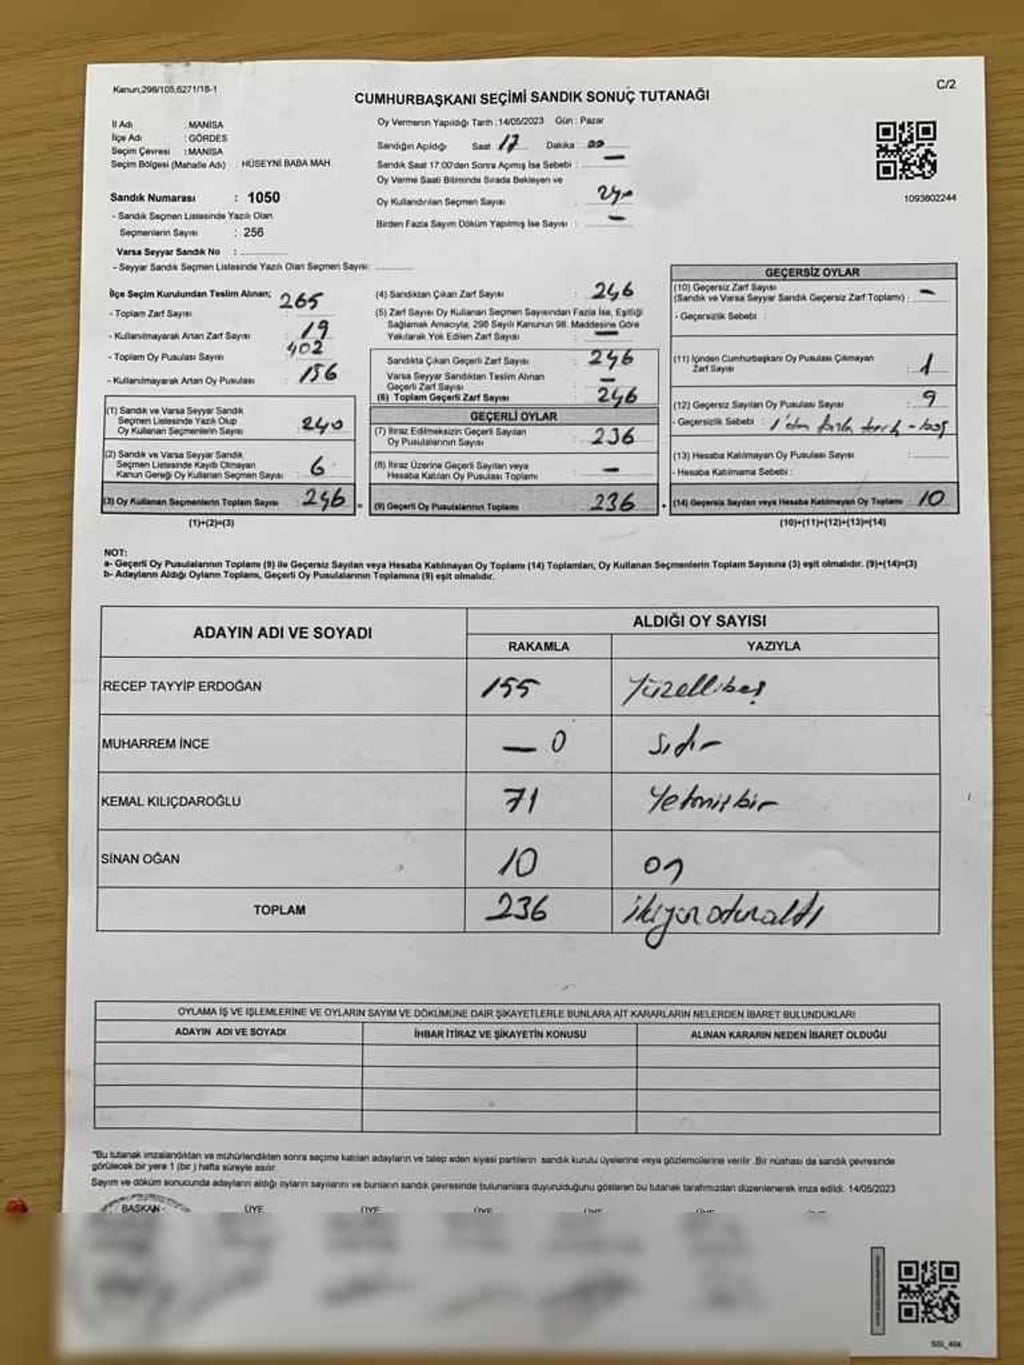 Kanun:298/105,6271/18-1
C/2
CUMHURBAŞKANI SEÇİMİ SANDIK SONUÇ TUTANAĞI
İl Adı : MANİSA
İlçe Adı : GÖRDES
Seçim Çevresi : MANİSA
Seçim Bölgesi (Mahalle Adı) : HÜSEYNİ BABA MAH
Sandık Numarası : 1050
- Sandık Seçmen Listesinde Yazılı Olan
Seçmenlerin Sayısı : 256
Varsa Seyyar Sandık No :
- Seyyar Sandık Seçmen Listesinde Yazılı Olan Seçmen Sayısı:
Oy Vermenin Yapıldığı Tarih :14/05/2023 Gün : Pazar
Sandığın Açıldığı Saat 17 Dakika : 00
Sandık Saat 17:00'den Sonra Açımış İse Sebebi : —
Oy Verme Saati Bitiminde Sırada Bekleyen ve
Oy Kullandırılan Seçmen Sayısı
Birden Fazla Sayım Döküm Yapılmış İse Sayısı : —
1093802244
İlçe Seçim Kurulundan Teslim Alınan;
- Toplam Zarf Sayısı : 265
- Kullanılmayarak Artan Zarf Sayısı : 19
- Toplam Oy Pusulası Sayısı : 402
- Kullanılmayarak Artan Oy Pusulası : 156
(1) Sandık ve Varsa Seyyar Sandık
Seçmen Listesinde Yazılı Olup
Oy Kullanan Seçmenlerin Sayısı : 240
(2) Sandık ve Varsa Seyyar Sandık
Seçmen Listesinde Kaydı Olmayan
Kanun Gereği Oy Kullanan Seçmen Sayısı : 6
(3) Oy Kullanan Seçmenlerin Toplam Sayısı : 246
(1)+(2)=(3)
(4) Sandıktan Çıkan Zarf Sayısı : 246
(5) Zarf Sayısı Oy Kullanan Seçmen Sayısından Fazla İse, Eşitliği
Sağlamak Amacıyla, 298 Sayılı Kanunun 98. Maddesine Göre
Yakılarak Yok Edilen Zarf Sayısı : —
Sandıkta Çıkan Geçerli Zarf Sayısı : 246
Varsa Seyyar Sandıktan Teslim Alınan
Geçerli Zarf Sayısı : —
(6) Toplam Geçerli Zarf Sayısı : 246
GEÇERLİ OYLAR
(7) İtiraz Edilmeksizin Geçerli Sayılan
Oy Pusulalarının Sayısı : 236
(8) İtiraz Üzerine Geçerli Sayılan veya
Hesaba Katılan Oy Pusulası Toplamı : —
(9) Geçerli Oy Pusulalarının Toplamı : 236
GEÇERSİZ OYLAR
(10) Geçersiz Zarf Sayısı
(Sandık ve Varsa Seyyar Sandık Geçersiz Zarf Toplamı) : —
- Geçersizlik Sebebi :
(11) İçinden Cumhurbaşkanı Oy Pusulası Çıkmayan
Zarf Sayısı : 1
(12) Geçersiz Sayılan Oy Pusulası Sayısı : 9
- Geçersizlik Sebebi : 1'den fazla tercih - boş
(13) Hesaba Katılmayan Oy Pusulası Sayısı :
- Hesaba Katılmama Sebebi :
(14) Geçersiz Sayılan veya Hesaba Katılmayan Oy Toplamı : 10
(10)+(11)+(12)+(13)=(14)
NOT:
a- Geçerli Oy Pusulalarının Toplamı (9) ile Geçersiz Sayılan veya Hesaba Katılmayan Oy Toplamı (14) Toplamları, Oy Kullanan Seçmenlerin Toplam Sayısına (3) eşit olmalıdır. (9)+(14)=(3)
b- Adayların Aldığı Oyların Toplamı, Geçerli Oy Pusulalarının Toplamına (9) eşit olmalıdır.
ADAYIN ADI VE SOYADI
ALDIĞI OY SAYISI
RAKAMLA YAZIYLA
RECEP TAYYİP ERDOĞAN 155 Yüzellibeş
MUHARREM İNCE — 0 sıfır
KEMAL KILIÇDAROĞLU 71 Yetmişbir
SİNAN OĞAN 10 on
TOPLAM 236 ikiyüzotuzaltı
OYLAMA İŞ VE İŞLEMLERİNE VE OYLARIN SAYIM VE DÖKÜMÜNE DAİR ŞİKAYETLERLE BUNLARA AİT KARARLARIN NELERDEN İBARET BULUNDUKLARI
ADAYIN ADI VE SOYADI İHBAR İTİRAZ VE ŞİKAYETİN KONUSU ALINAN KARARIN NEDEN İBARET OLDUĞU
"Bu tutanak imzalandıktan ve mühürlendikten sonra seçime katılan adayların ve talep eden siyasi partilerin sandık kurulu üyelerine veya gözlemcilerine verilir. Bir nüshası da sandık çevresinde
görülecek bir yere 1 (bir ) hafta süreyle asılır.
Sayım ve döküm sonucunda adayların aldığı oyların sayılarını ve bunların sandık çevresinde bulunanlara duyurulduğunu gösteren bu tutanak tarafımızdan düzenlenerek imza edildi. 14/05/2023
BAŞKAN ÜYE ÜYE ÜYE ÜYE ÜYE